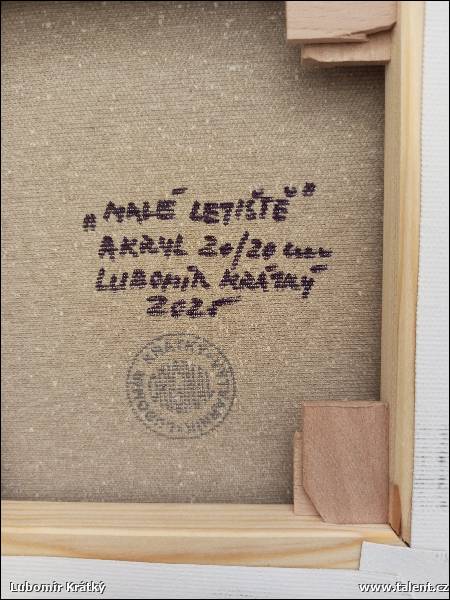 „MALÉ LETIŠTĚ"
AKRYL 20/20 cm
LUBOMÍR KRÁTKÝ
2025
LUBOMÍR KRÁTKÝ · VÝTVARNÍK ·
Lubomír Krátký
www.talent.cz